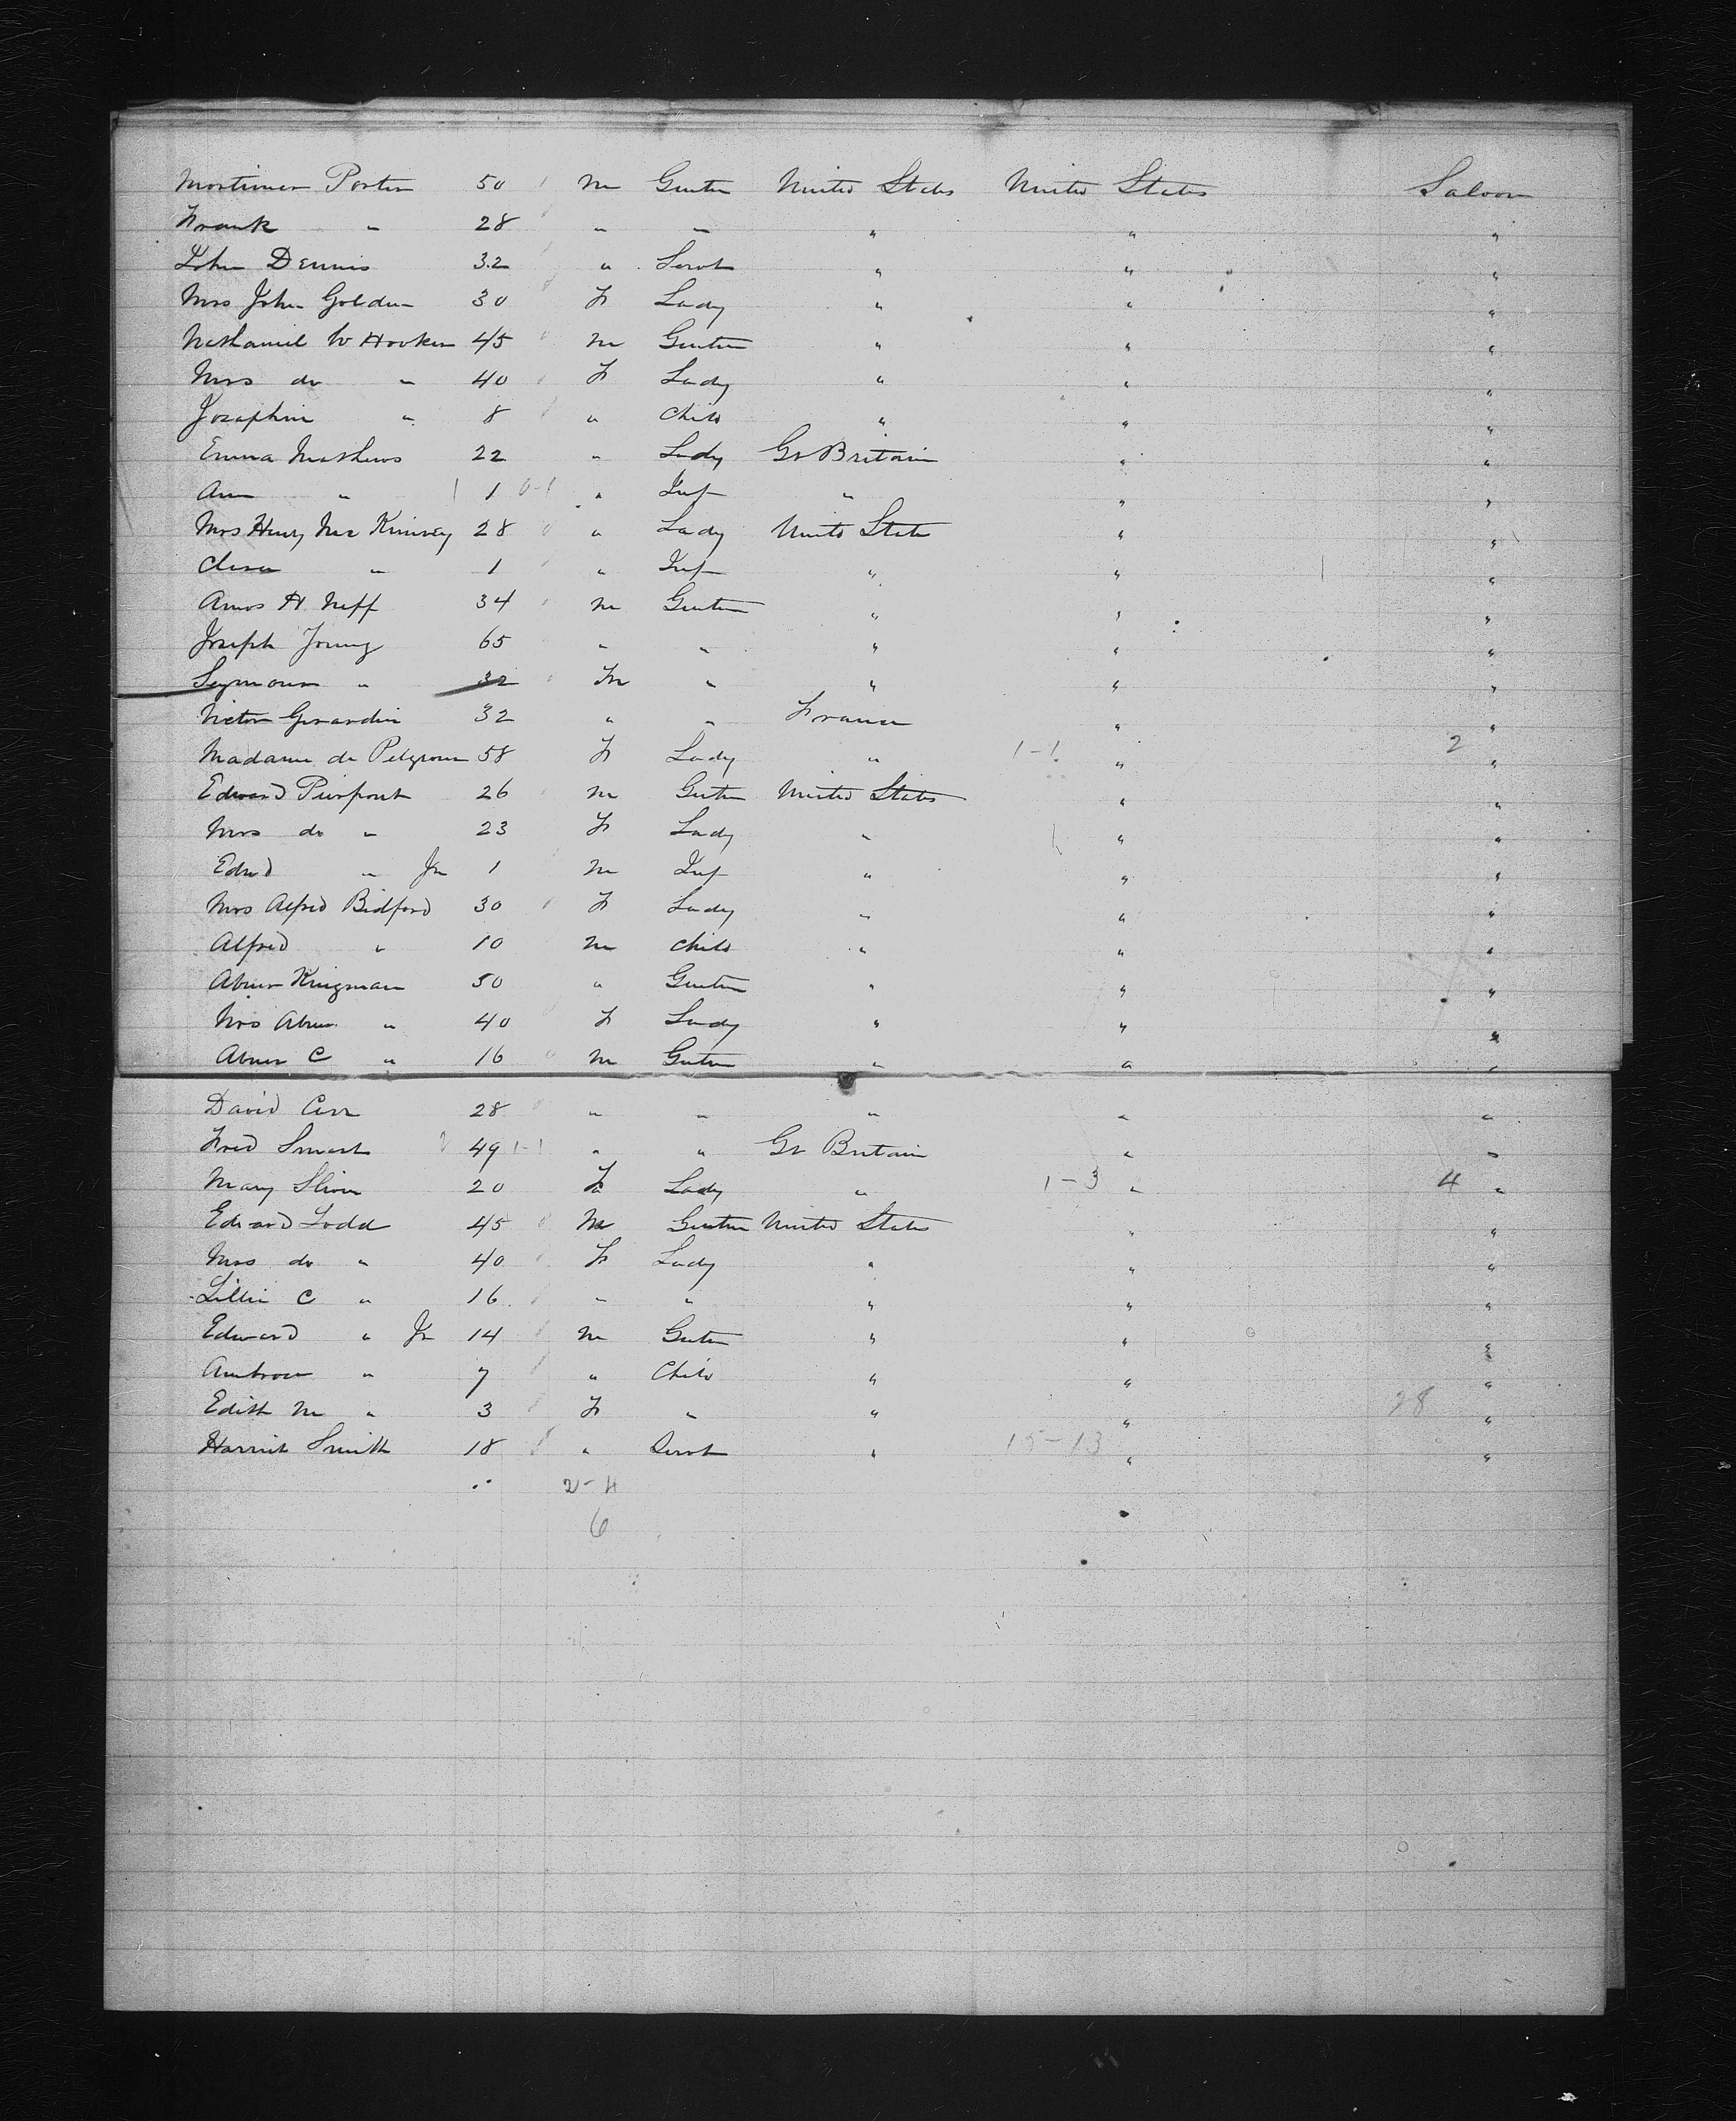 Mortimer Porter 50 m Gentn United States United States Saloon
Frank " 28 " " " " "
John Dennis 32 " Servt " " "
Mrs John Golden 30 F Lady " " "
Nathaniel W Hooker 45 m Gentn " " "
Mrs do " 40 F Lady " " "
Josaphine " 8 " Child " " "
Emma Mathews 22 " Lady Gt Britain " "
Ann " 1 1 0-1 " Inf " " "
Mrs Henry Mc Kinsey 28 " Lady United States " "
Clara " 1 " Inf " " "
Amos H Neff 34 m Gentn " " "
Joseph Young 65 " " " " "
Seymour " 32 m " " " "
Victor Girardin 32 " " France " "
Madame de 58 F Lady " 1-1 " 2 "
Edward Pierpont 26 m Gentn United States " "
Mrs do " 23 F Lady " " "
Edwd " Jr 1 m Inf " " "
Mrs Alfred Bedford 30 F Lady " " "
Alfred " 10 m Child " " "
Abner Kingman 50 " Gentn " " "
Mrs Abner " 40 F Lady " " "
Abner C " 16 m Gentn " " "
David Carr 28 " " " " "
Fred Smart 2 49 1-1 " " Gt Britain " "
Mary 20 F Lady " 1-3 " 4 "
Edward Todd 45 M Gentn United States " "
Mrs do " 40 F Lady " " "
Lillie C " 16 " " " " "
Edward " Jr 14 m Gentn " " "
Ambrose " 7 " Child " " "
Edith M " 3 F " " " 28 "
Harriet Smith 18 " Servt " 15-13 " "
2-4
6